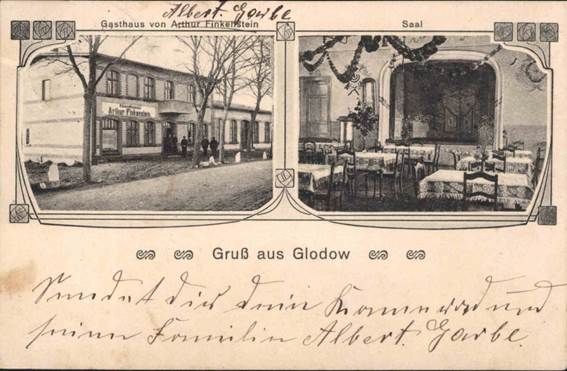 Albert. Garbe
Gasthaus von Arthur Finkenstein
Saal
Arthur Finkenstein
Gruß aus Glodow
Sendet dir dein Kamerad und
seine Familie Albert. Garbe.